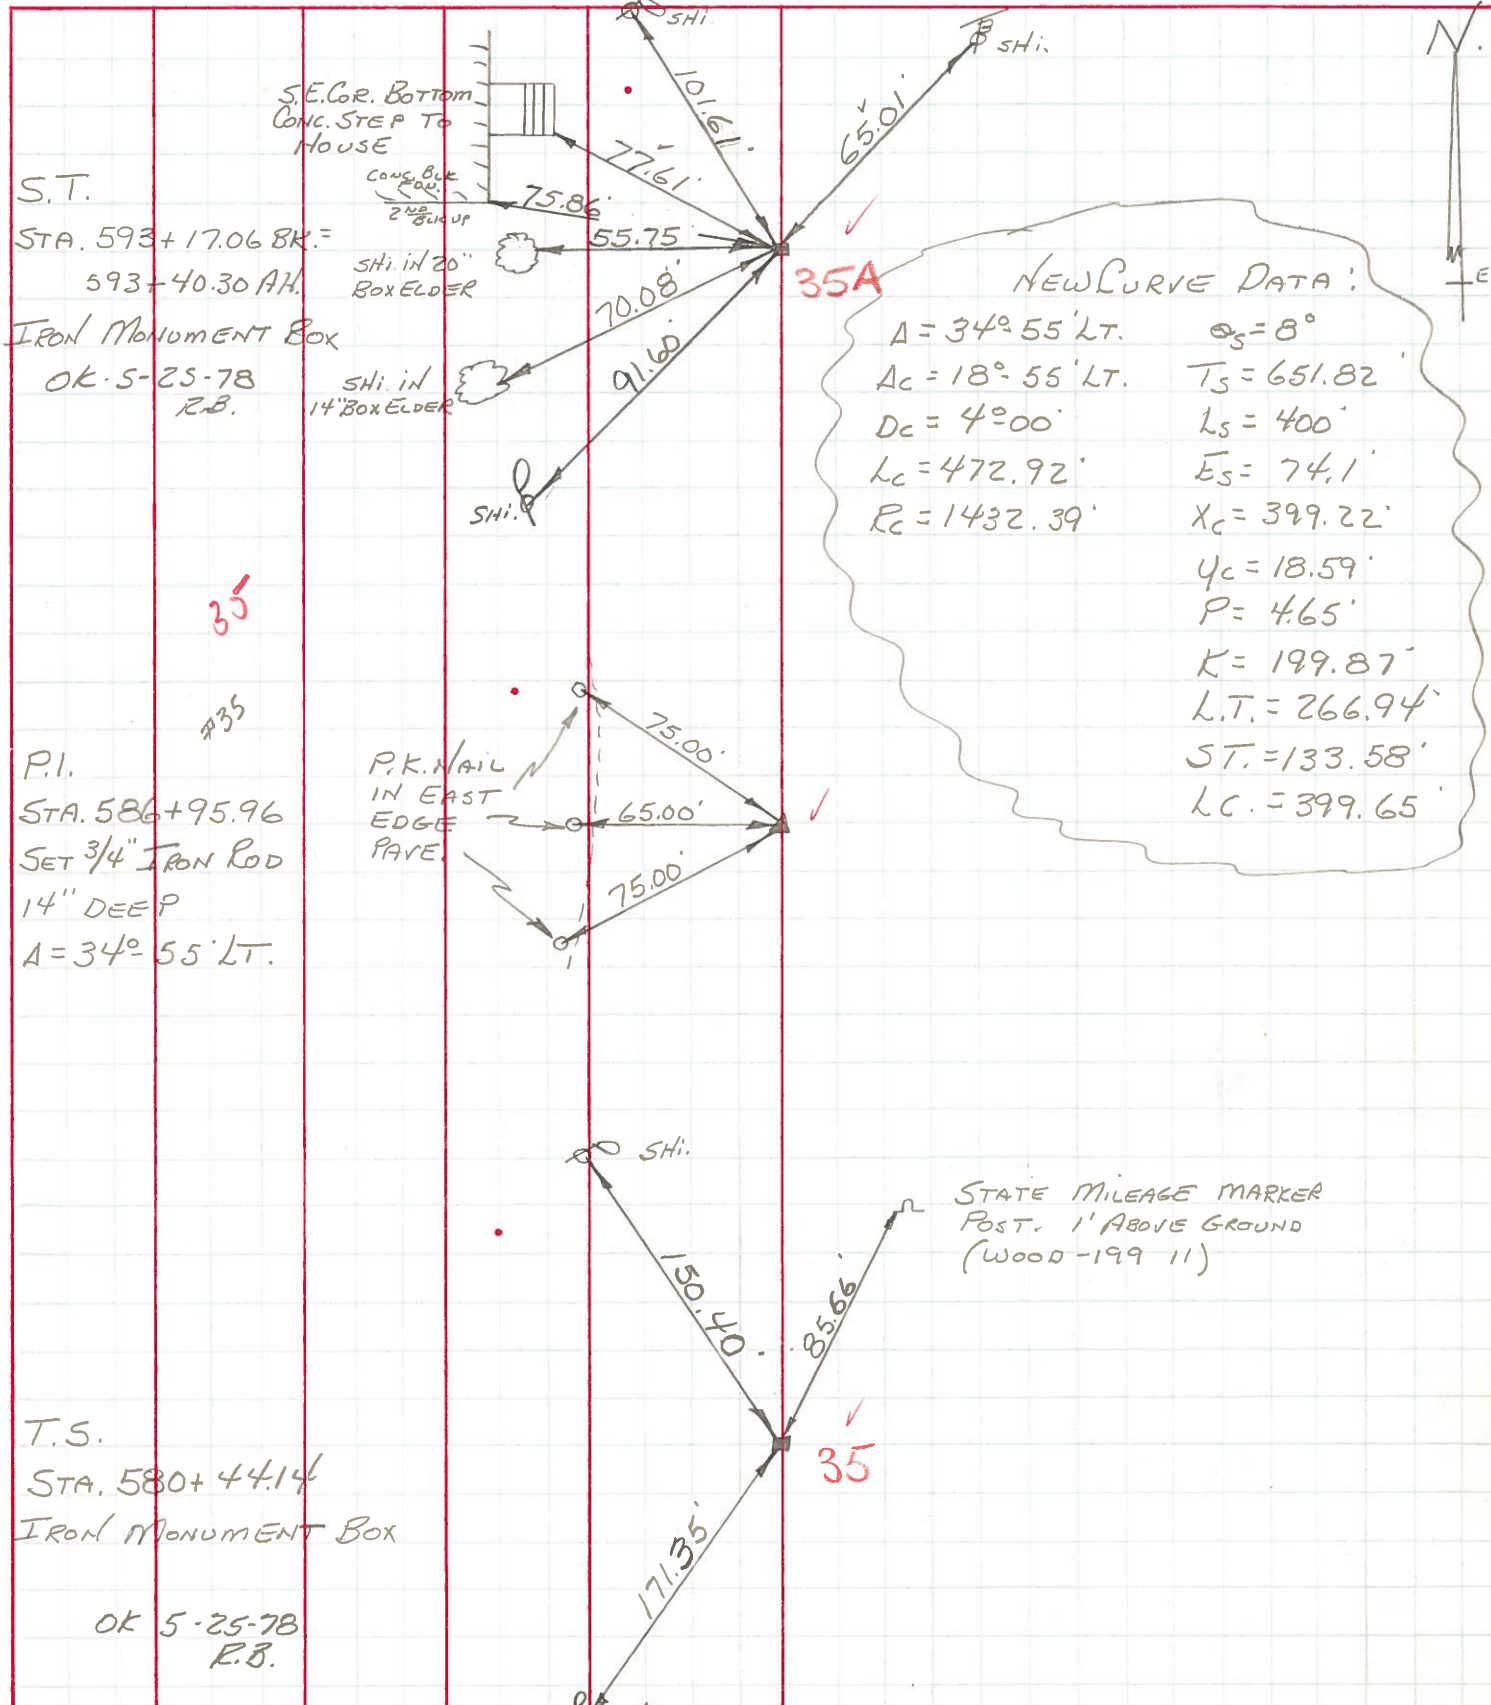 SHi.
SHi.
N.
E
101.61'
65.01'
S.E. COR. BOTTOM
CONC. STEP TO
HOUSE
77.61'
CONC. BLK
FDN.
2ND BLK UP
75.86'
S.T.
STA. 593+17.06 BK.=
593+40.30 AH.
IRON MONUMENT BOX
OK. 5-25-78
R.B.
SHi. IN 20"
BOX ELDER
55.75
35A
70.08'
SHi. IN
14" BOX ELDER
91.60'
SHi.
NEW CURVE DATA:
Δ = 34°-55' LT.
Δc = 18°-55' LT.
Dc = 4°-00'
Lc = 472.92'
Rc = 1432.39'
θs = 8°
Ts = 651.82'
Ls = 400'
Es = 74.1'
Xc = 399.22'
Yc = 18.59'
P = 4.65'
K = 199.87'
L.T. = 266.94'
ST. = 133.58'
LC. = 399.65'
35
#35
P.I.
STA. 586+95.96
SET 3/4" IRON ROD
14" DEEP
Δ = 34°-55' LT.
P.K. NAIL
IN EAST
EDGE
PAVE.
75.00'
65.00'
75.00'
SHi.
STATE MILEAGE MARKER
POST. 1' ABOVE GROUND
(WOOD-199 11)
150.40
85.66'
T.S.
STA. 580+44.14
IRON MONUMENT BOX
35
171.35'
OK 5-25-78
R.B.